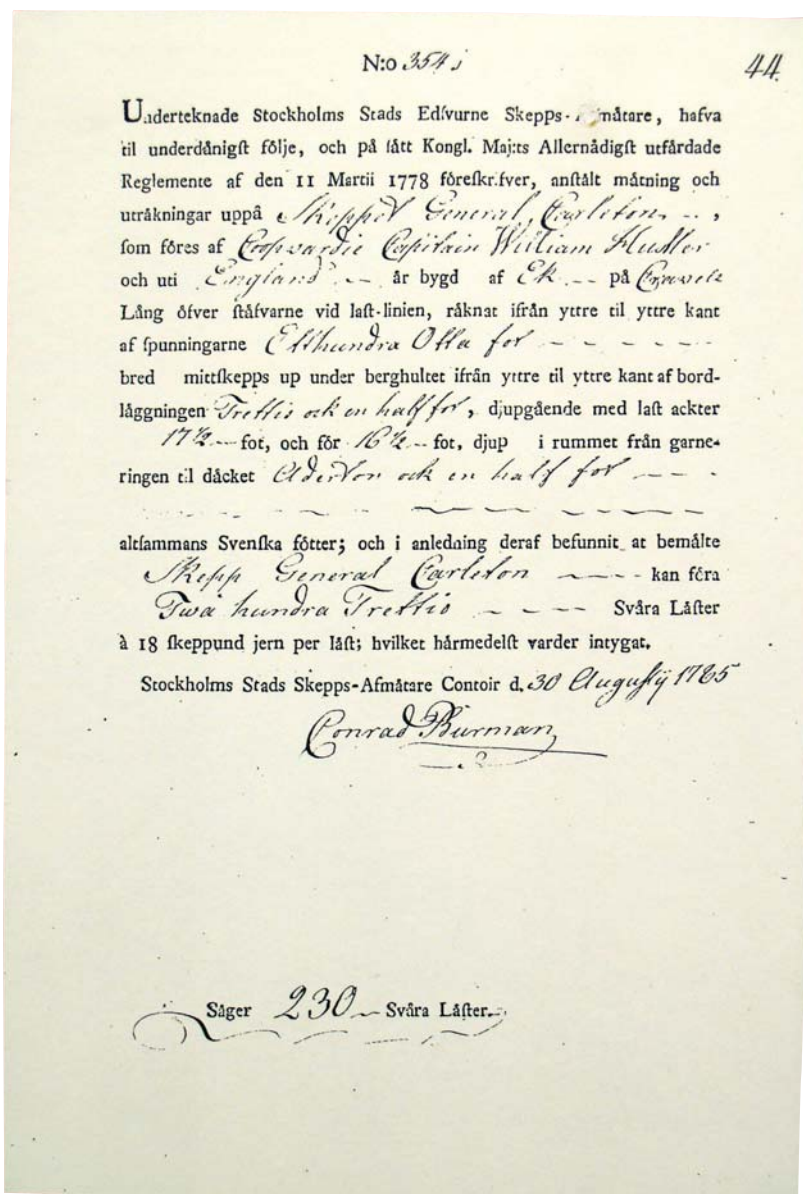 N:o 354 j
44.
Underteknade Stockholms Stads Edſvurne Skepps-Afmåtare, hafva
til underdånigſt följe, och på ſått Kongl. Maj:ts Allernådigſt utfårdade
Reglemente af den 11 Martii 1778 föreſkrifver, anſtålt måtning och
utråkningar uppå Skeppet General Carleton - - ,
ſom föres af Coopvardie Capitain William Hustler
och uti England - - år bygd af Ek - - på Cravele
Lång öfver ſtåfvarne vid laſt-linien, råknat ifrån yttre til yttre kant
af ſpunningarne Etthundra Otta fot - - - - - -
bred mittſkepps up under berghultet ifrån yttre til yttre kant af bord-
låggningen Trettio och en half fot, djupgående med laſt ackter
17 1/2 - fot, och för 16 1/2 - fot, djup i rummet från garne-
ringen til dåcket Aderton och en half fot - - -
altſammans Svenſka fötter; och i anledning deraf befunnit at bemålte
Skepp General Carleton - - - - kan föra
Twå hundra Trettio - - - - Svåra Låſter
à 18 ſkeppund jern per låſt; hvilket hårmedelſt varder intygat.
Stockholms Stads Skepps-Afmåtare Contoir d. 30 Augusty 1785
Conrad Burman
Såger 230 - Svåra Låſter.